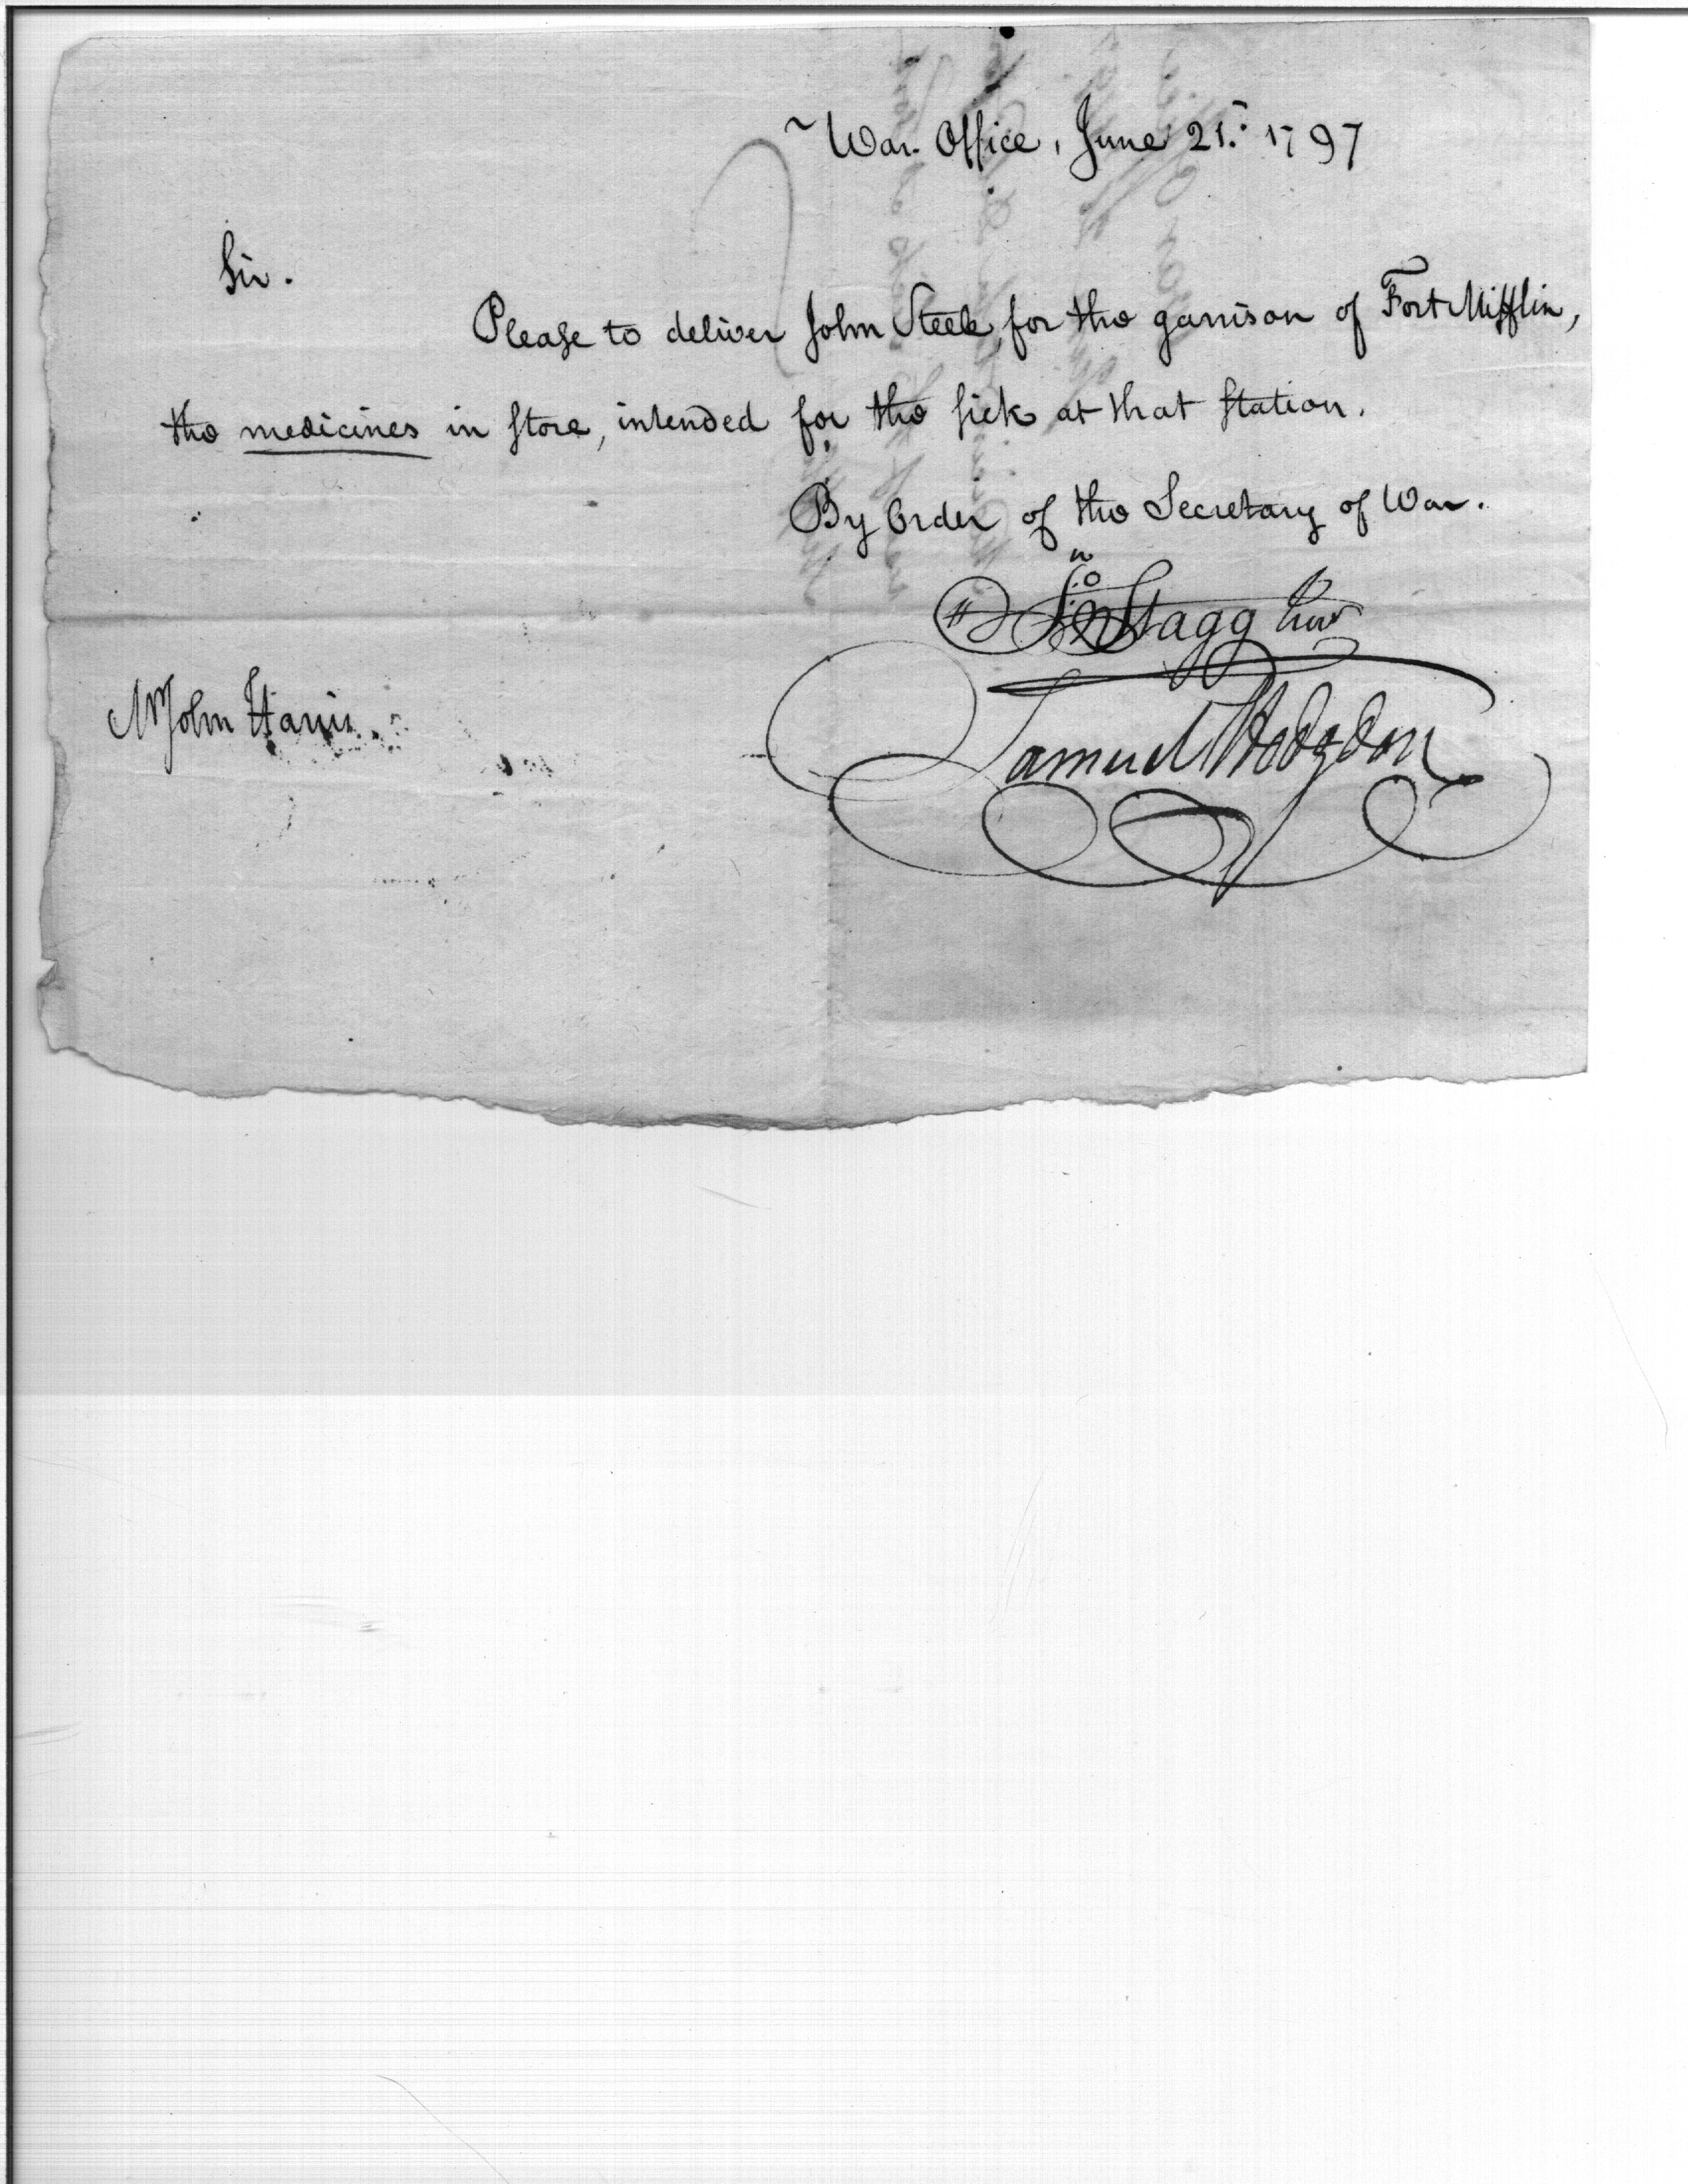 War Office, June 21st 1797
Sir.
Please to deliver John Steele, for the garrison of Fort Mifflin,
the medicines in store, intended for the sick at that station.
By Order of the Secretary of War.
Jno Stagg Junr
Samuel Hodgdon
Mr John Harris.